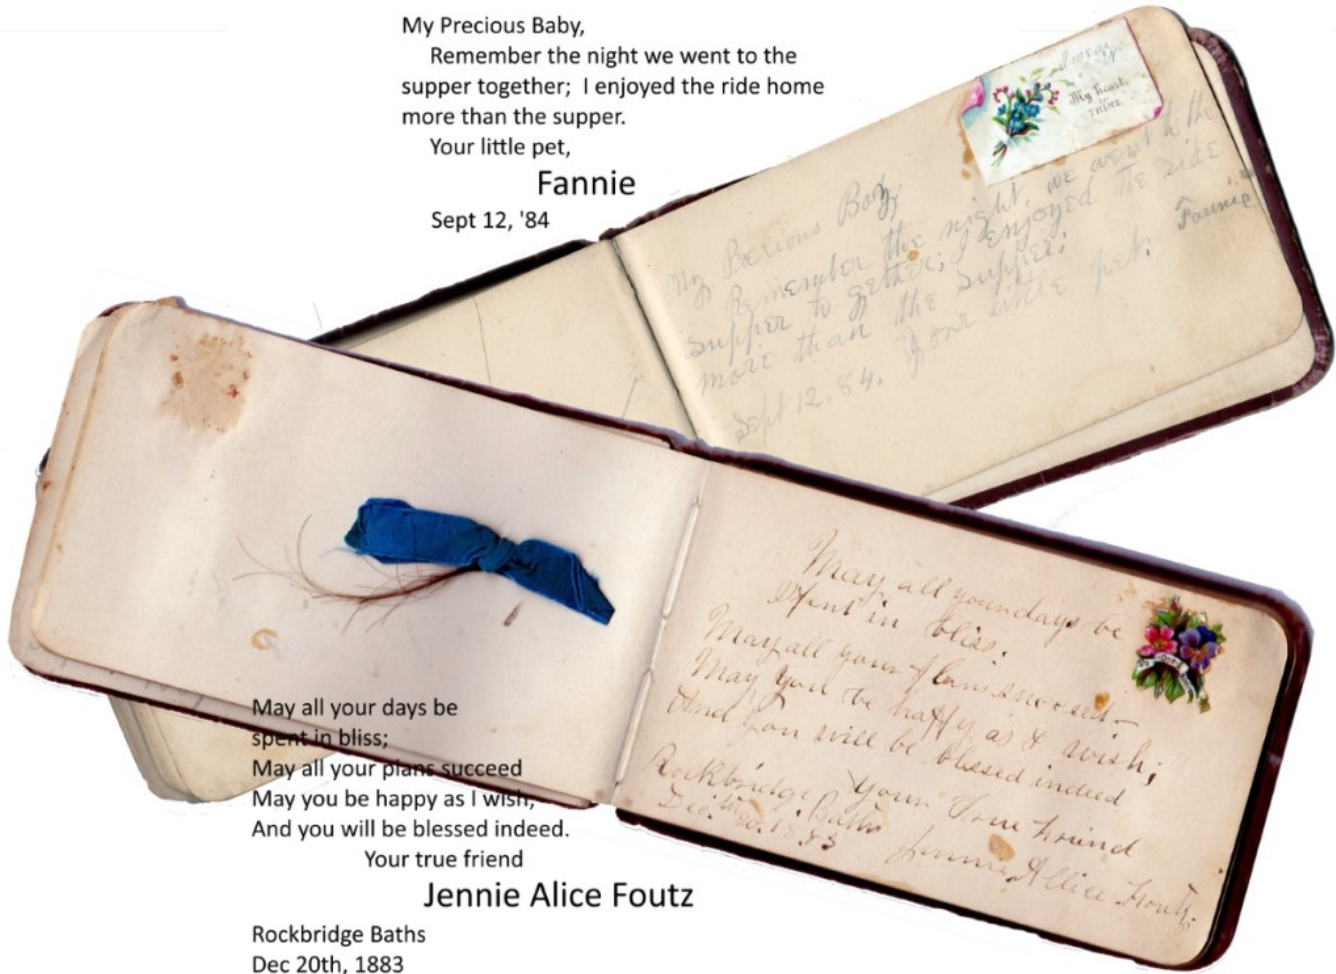 My Precious Baby,
Remember the night we went to the
supper together; I enjoyed the ride home
more than the supper.
Your little pet,
Fannie
Sept 12, '84
My Heart
is
THINE
My Precious Baby,
Remember the night, we went to the
supper to gether; I enjoyed the ride
more than the supper.
Your little pet. Fannie
Sept 12. 84.
May all your days be
Spent in bliss.
May all your plans succeed
May you be happy as I wish;
And you will be blessed indeed
Your True Friend
Rockbridge Baths
Dec. 20th 1883
Jennie Allice Foutz.
May all your days be
spent in bliss;
May all your plans succeed
May you be happy as I wish,
And you will be blessed indeed.
Your true friend
Jennie Alice Foutz
Rockbridge Baths
Dec 20th, 1883